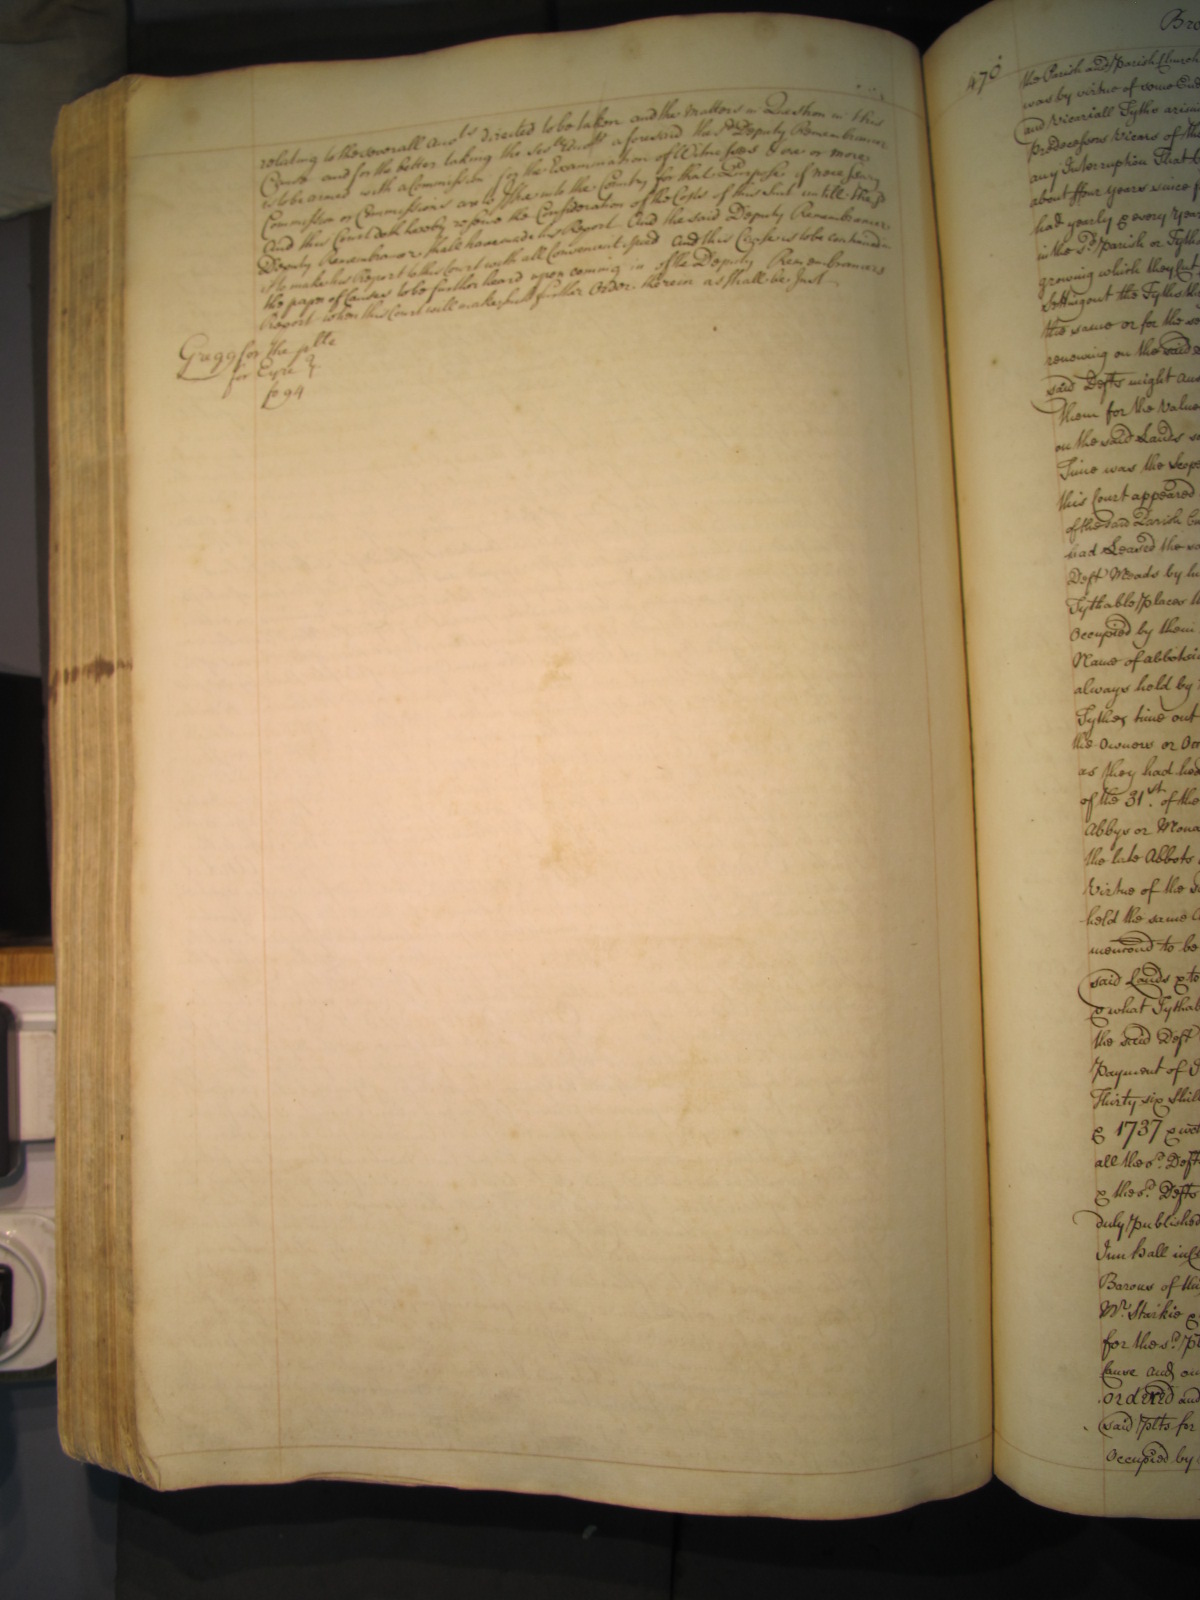 relating to the severall acc.ts directed to be taken and the matters in Question in this
Cause and for the better taking the sev.ll acc.ts aforesaid the s.d Deputy Remembrancer
is to be armed with a Commission for the Examination of Witnesses & one or more
Commission or Commissions are to Issue into the Country for that Purpose if necessary
And this Court doth hereby reserve the Consideration of the Costs of this Suit untill the s.d
Deputy Remembrancer shall have made his Report And the said Deputy Remembrancer
is to make his Report to this Court with all Convenient speed And this Cause is to be continued in
the paper of Causes to be further heard upon coming in of the Deputy Remembrancers
Report when this Court will make such further Order therein as shall be Just
Gregg for the plte
for Eyre
fo 94
Bro
470
the Parish and Parish Church
was by virtue of some
and Vicariall Tyths
predecessors Vicars of the
any Interruption That
about ffour years since
had yearly & every year
in the s.d Parish or Tyth
growing which they
setting out the Tyths
the same or for the
renewing on the said
said Defts might
them for the Value
on the said Lands
Time was the Scope
this Court appeared
of the said Parish
had Leased the
Deft Meads by
Tythable places
Occupied by them
Name of
always held by
Tythes time out
the Owners or
as they had
of the 31st. of the
Abbys or
the late Abbots
Virtue of the
held the same
to be
said Lands &
& what
the said Deft
Payment of
Thirty six
& 1737 &
all the s.d Defts
& the s.d Defts
duly published
Inn hall
Barons of
Mr. Starkie &
for the s.d
Cause and
ordered and
said plts for
Occupied by